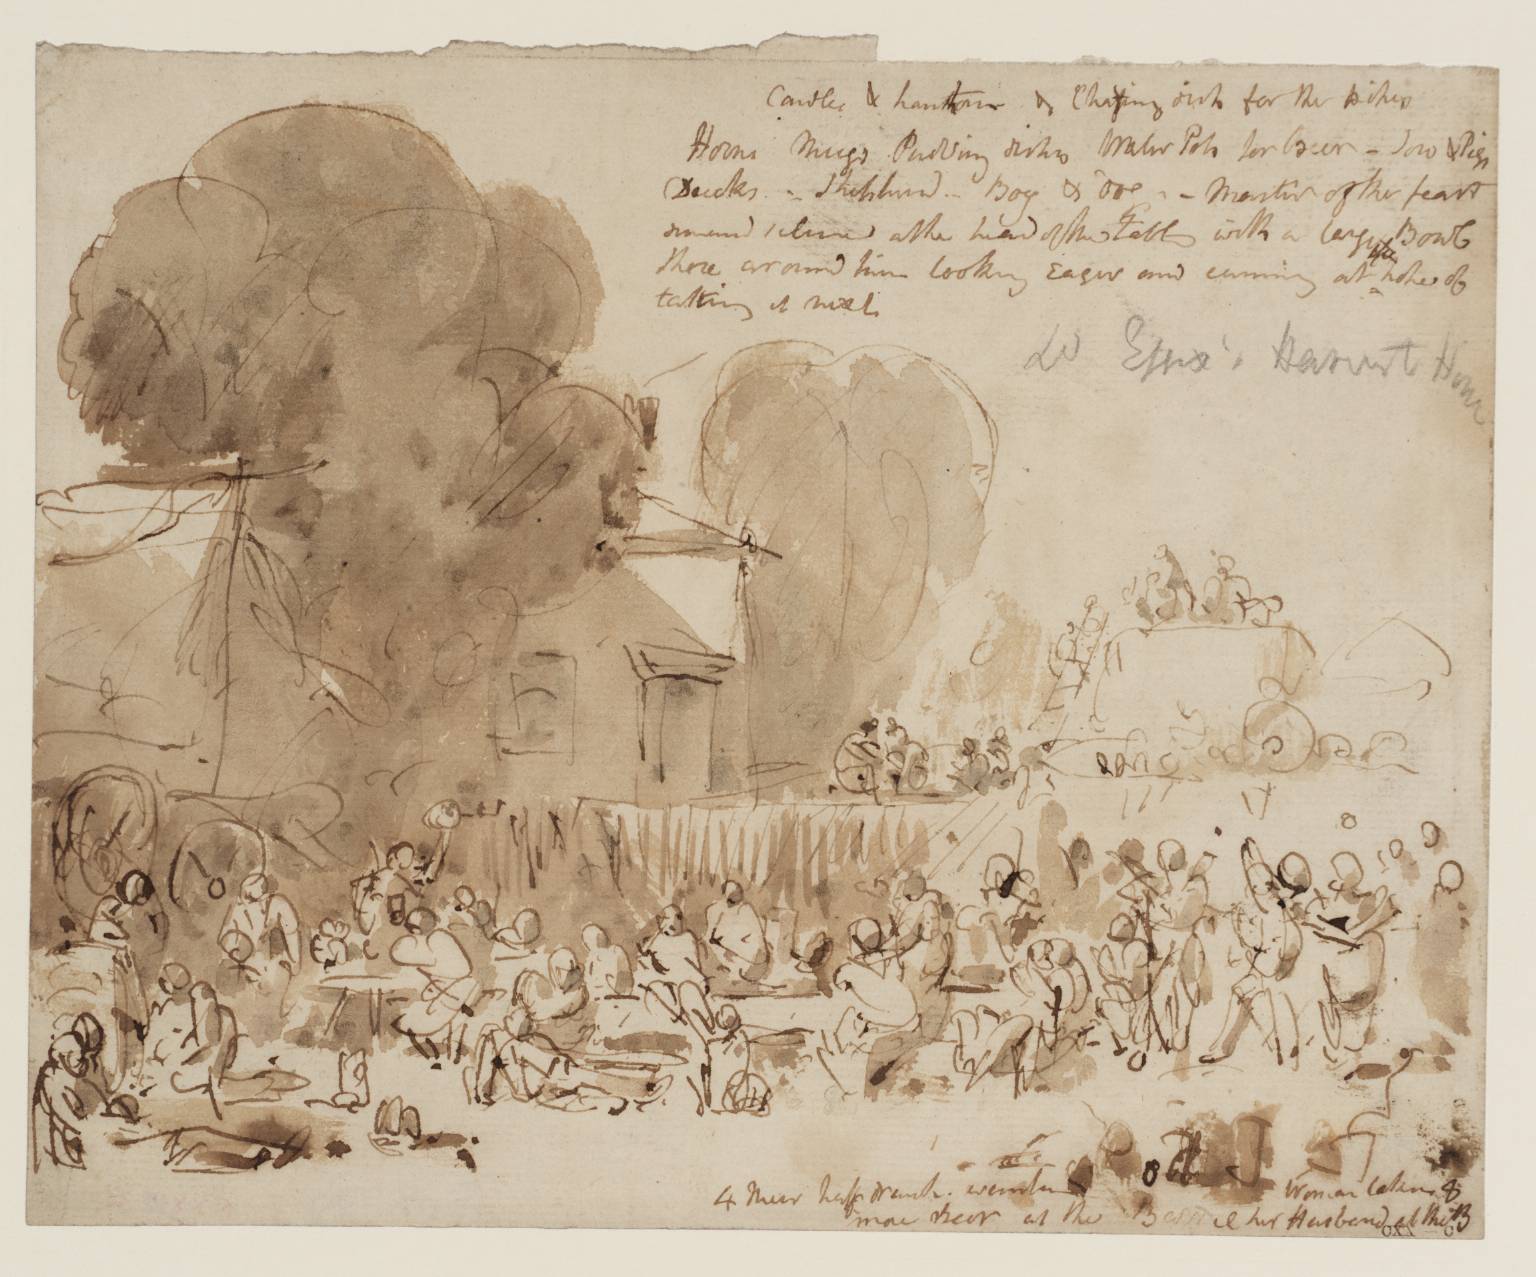 Candles & Lanthorn & Chafing dish for the
Horns Mugs Pudding dishes Water Pots for beer - Sow & Pigs
Ducks - Shepherd - Boy & - Master of the feast
at the head of the Table with a large Bowl
those around him looking Eager and cunning at the of
taking it next
Ld Essex's Harvest Home
4 Men half drunk. Woman taking
more Beer at the Barrel her Husband at the B